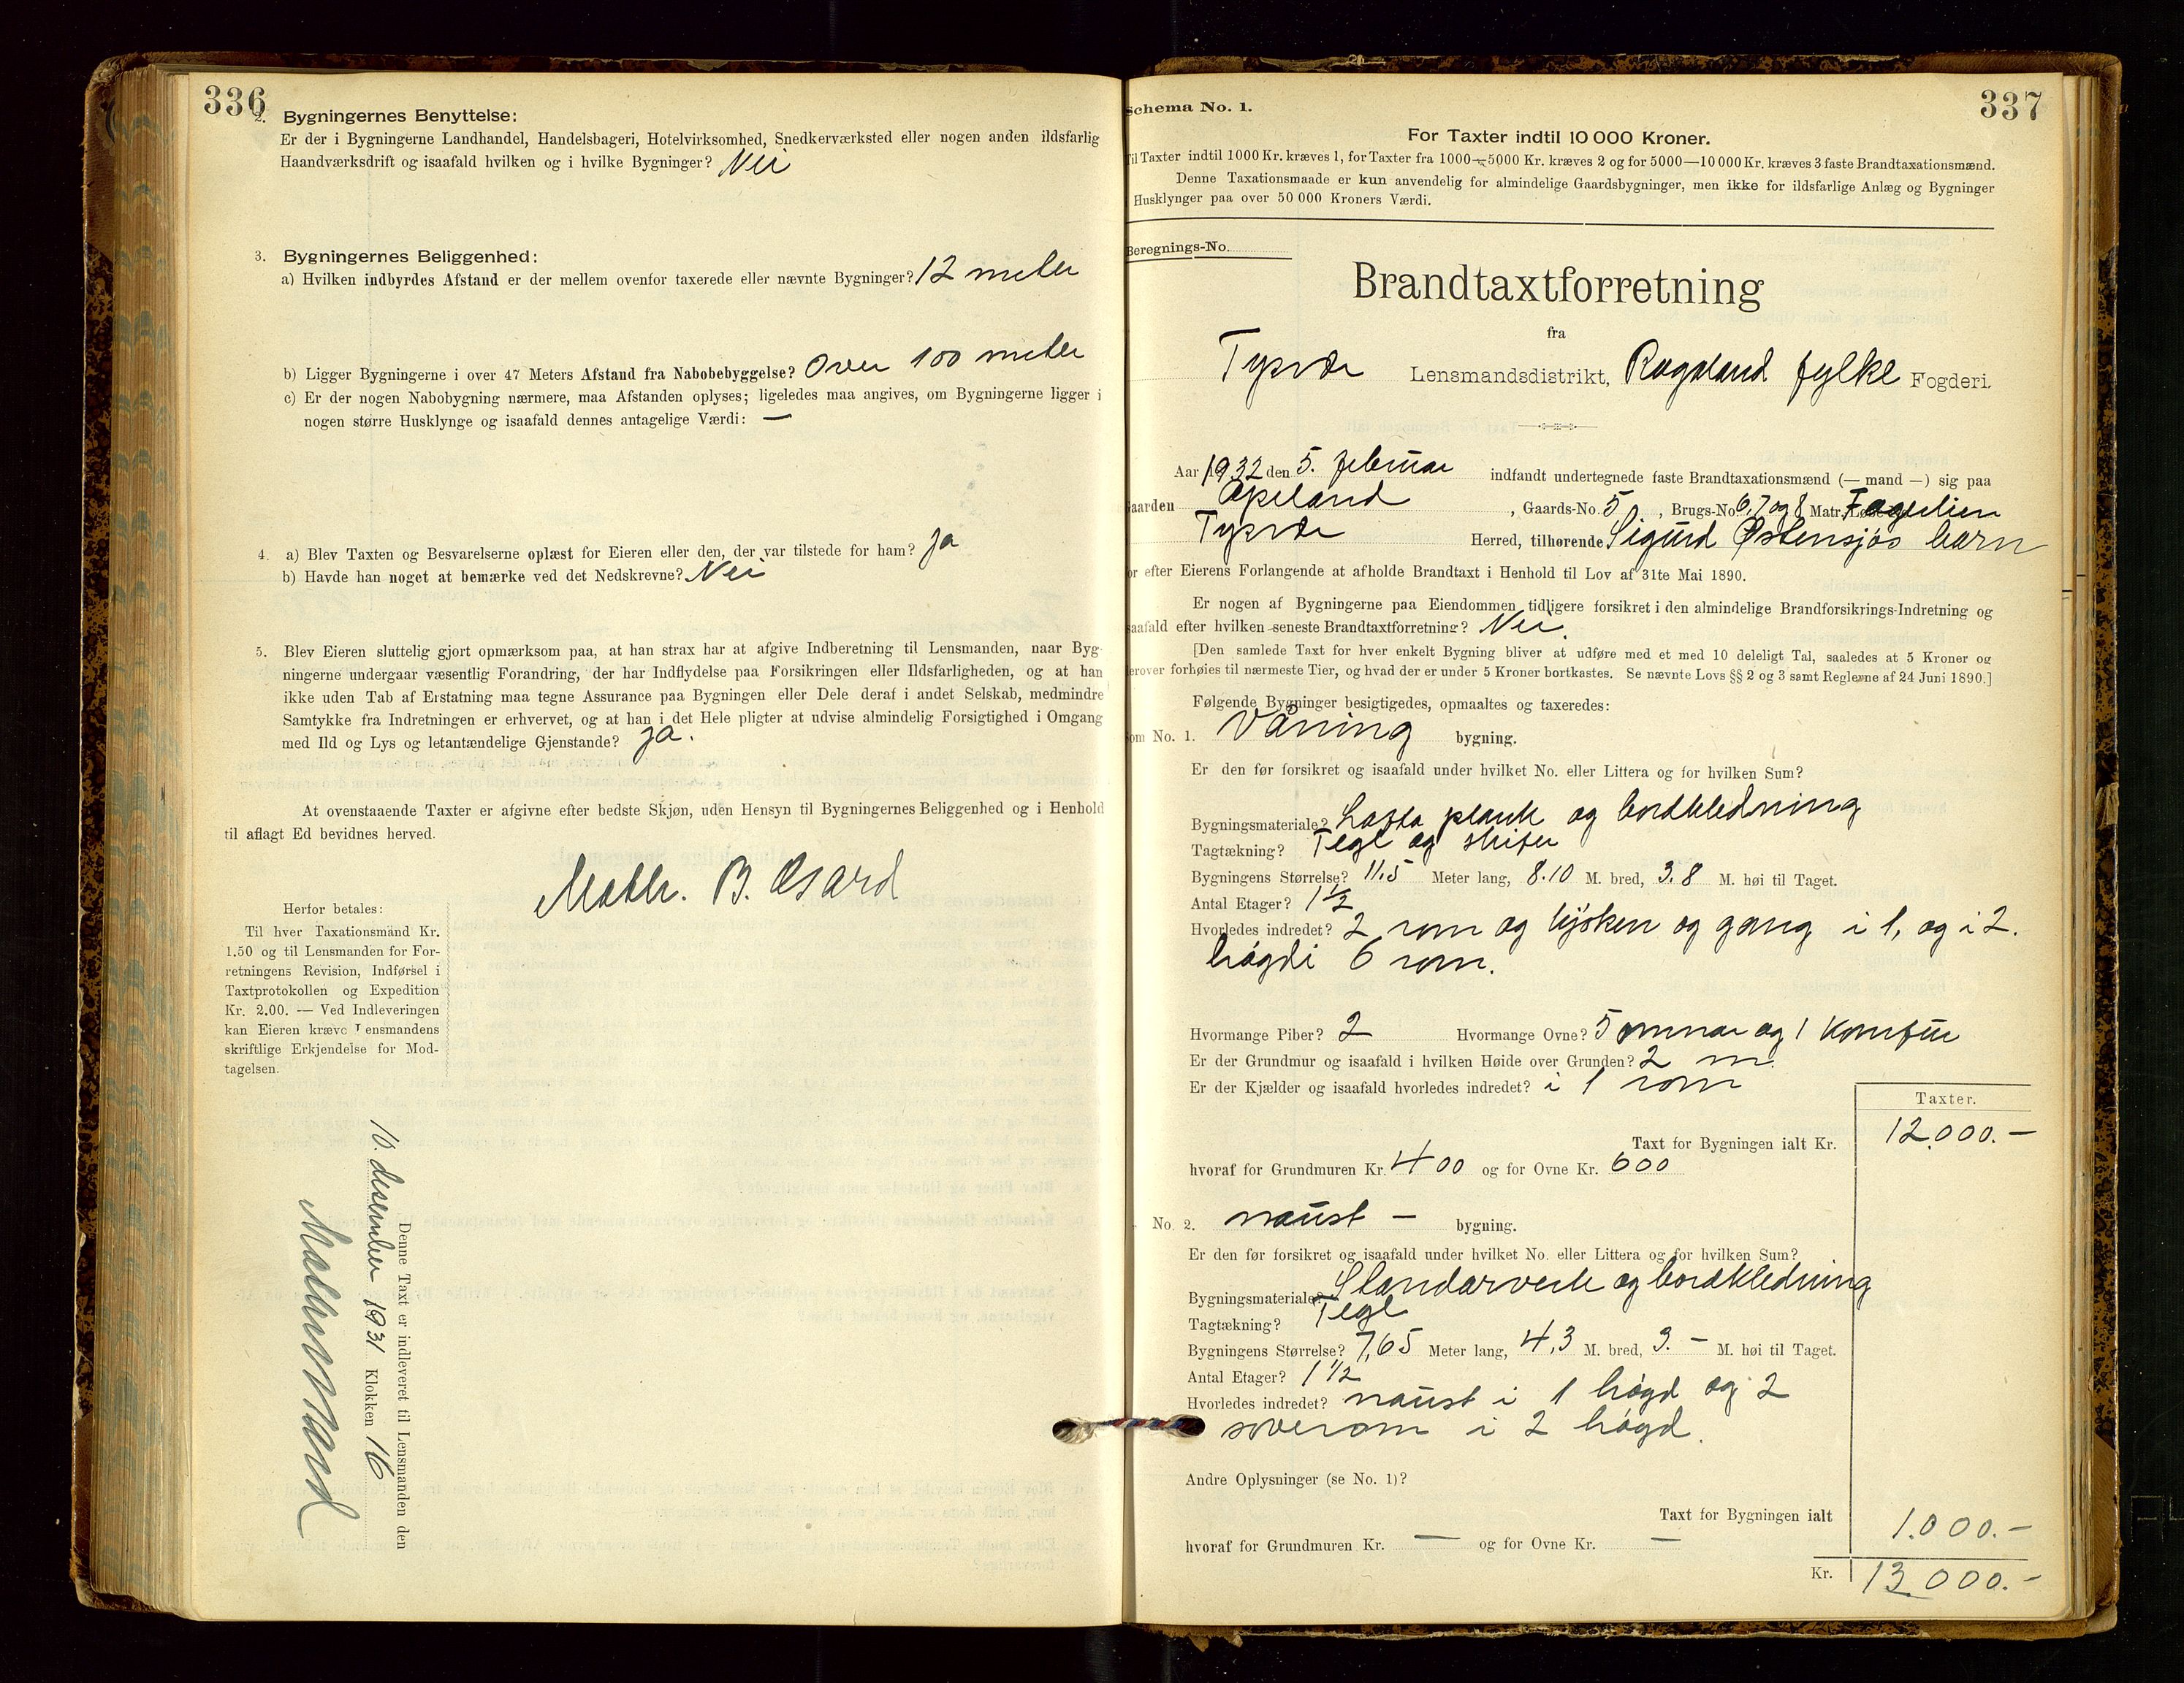 336
2. Bygningernes Benyttelse:
Er der i Bygningerne Landhandel, Handelsbageri, Hotelvirksomhed, Snedkerværksted eller nogen anden ildsfarlig
Haandværksdrift og isaafald hvilken og i hvilke Bygninger? Nei
3. Bygningernes Beliggenhed:
a) Hvilken indbyrdes Afstand er der mellem ovenfor taxerede eller nævnte Bygninger? 12 meter
b) Ligger Bygningerne i over 47 Meters Afstand fra Nabobebyggelse? Over 100 meter
c) Er der nogen Nabobygning nærmere, maa Afstanden oplyses; ligeledes maa angives, om Bygningerne ligger i
nogen større Husklynge og isaafald dennes antagelige Værdi: —
4. a) Blev Taxten og Besvarelserne oplæst for Eieren eller den, der var tilstede for ham? Ja
b) Havde han noget at bemærke ved det Nedskrevne? Nei
5. Blev Eieren sluttelig gjort opmærksom paa, at han strax har at afgive Indberetning til Lensmanden, naar Byg-
ningerne undergaar væsentlig Forandring, der har Indflydelse paa Forsikringen eller Ildsfarligheden, og at han
ikke uden Tab af Erstatning maa tegne Assurance paa Bygningen eller Dele deraf i andet Selskab, medmindre
Samtykke fra Indretningen er erhvervet, og at han i det Hele pligter at udvise almindelig Forsigtighed i Omgang
med Ild og Lys og letantændelige Gjenstande? Ja.
At ovenstaaende Taxter er afgivne efter bedste Skjøn, uden Hensyn til Bygningernes Beliggenhed og i Henhold
til aflagt Ed bevidnes herved.
B.
Herfor betales:
Til hver Taxationsmand Kr.
1.50 og til Lensmanden for For-
retningens Revision, Indførsel i
Taxtprotokollen og Expedition
Kr. 2.00. — Ved Indleveringen
kan Eieren kræve Lensmandens
skriftlige Erkjendelse for Mod-
tagelsen.
Denne Taxt er indleveret til Lensmanden den
10. desember 1931 Klokken 16
337
Schema No. 1.
For Taxter indtil 10 000 Kroner.
Til Taxter indtil 1000 Kr. kræves 1, for Taxter fra 1000—5000 Kr. kræves 2 og for 5000—10 000 Kr. kræves 3 faste Brandtaxationsmænd.
Denne Taxationsmaade er kun anvendelig for almindelige Gaardsbygninger, men ikke for ildsfarlige Anlæg og Bygninger
Husklynger paa over 50 000 Kroners Værdi.
Beregnings-No.
Brandtaxtforretning
fra
Tysvær Lensmandsdistrikt, Rogaland fylke Fogderi.
Aar 1932 den 5. februar indfandt undertegnede faste Brandtaxationsmænd (— mand —) sig paa
Gaarden Apeland, Gaards-No. 5, Brugs-No. 6, 7 og 8 Matr. Fagerlien
Tysvær Herred, tilhørende Sigurd Østensjøs barn
for efter Eierens Forlangende at afholde Brandtaxt i Henhold til Lov af 31te Mai 1890.
Er nogen af Bygningerne paa Eiendommen tidligere forsikret i den almindelige Brandforsikrings-Indretning og
isaafald efter hvilken seneste Brandtaxtforretning? Nei.
[Den samlede Taxt for hver enkelt Bygning bliver at udføre med et med 10 deleligt Tal, saaledes at 5 Kroner og
derover forhøies til nærmeste Tier, og hvad der er under 5 Kroner bortkastes. Se nævnte Lovs §§ 2 og 3 samt Reglerne af 24 Juni 1890.]
Følgende Bygninger besigtigedes, opmaaltes og taxeredes:
Som No. 1. Våning bygning.
Er den før forsikret og isaafald under hvilket No. eller Littera og for hvilken Sum?
Bygningsmateriale? Lafta plank og bordkledning
Tagtækning? Tegl og skifer
Bygningens Størrelse? 11.5 Meter lang, 8.10 M. bred, 3.8 M. høi til Taget.
Antal Etager? 1 1/2
Hvorledes indredet? 2 rom og kjøken og gang i 1, og i 2.
høgdi 6 rom.
Hvormange Piber? 2 Hvormange Ovne? 5 omnar og 1 komfur
Er der Grundmur og isaafald i hvilken Høide over Grunden? 2 m.
Er der Kjælder og isaafald hvorledes indredet? i 1 rom
Taxter.
Taxt for Bygningen ialt Kr. 12.000.—
hvoraf for Grundmuren Kr. 400 og for Ovne Kr. 600
No. 2. naust — bygning.
Er den før forsikret og isaafald under hvilket No. eller Littera og for hvilken Sum?
Bygningsmateriale? Standarverk og bordkledning
Tagtækning? Tegl
Bygningens Størrelse? 7,65 Meter lang, 4,3 M. bred, 3.— M. høi til Taget.
Antal Etager? 1 1/2
Hvorledes indredet? naust i 1 høgd og 2
soverom i 2 høgd.
Andre Oplysninger (se No. 1)?
Taxt for Bygningen ialt 1.000.—
hvoraf for Grundmuren Kr. — og for Ovne Kr. —
Kr. 13000.—